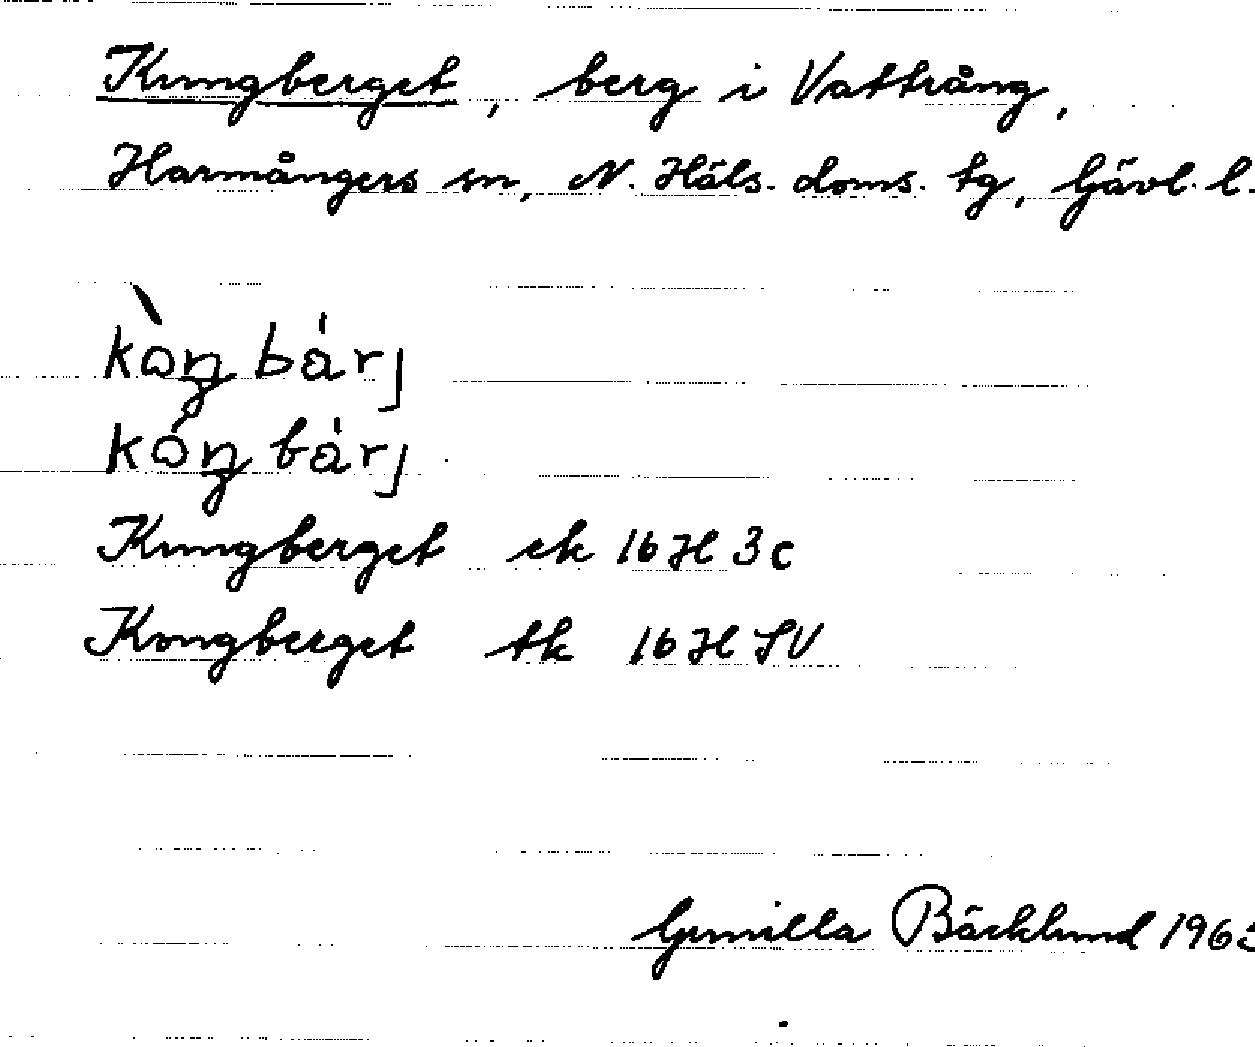 Kungberget, berg i Vattrång,
Harmångers sn, N. Häls. doms. tg, Gävl. l.
kòŋ bárj
kóŋ bárj
Kungberget ek 16 H 3c
Kongberget tk 16 H SV
Gunilla Bäcklund